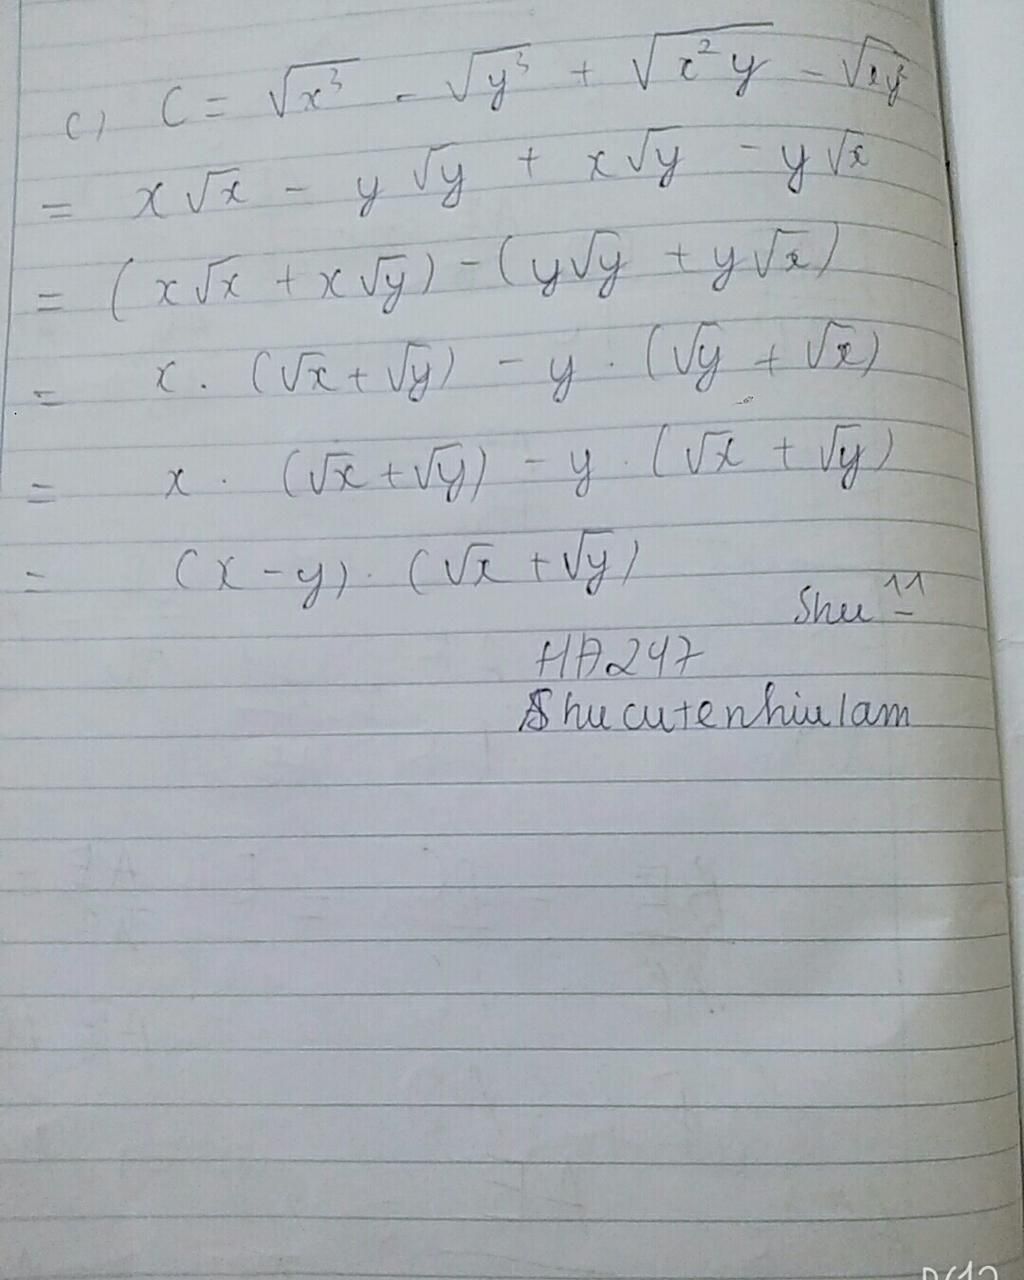 c) C = √x³ - √y³ + √x²y - √xy²
= x√x - y√y + x√y - y√x
= (x√x + x√y) - (y√y + y√x)
= x . (√x + √y) - y . (√y + √x)
= x . (√x + √y) - y . (√x + √y)
= (x - y) . (√x + √y)
Shu ^^
HA247
Shucutenhiulam